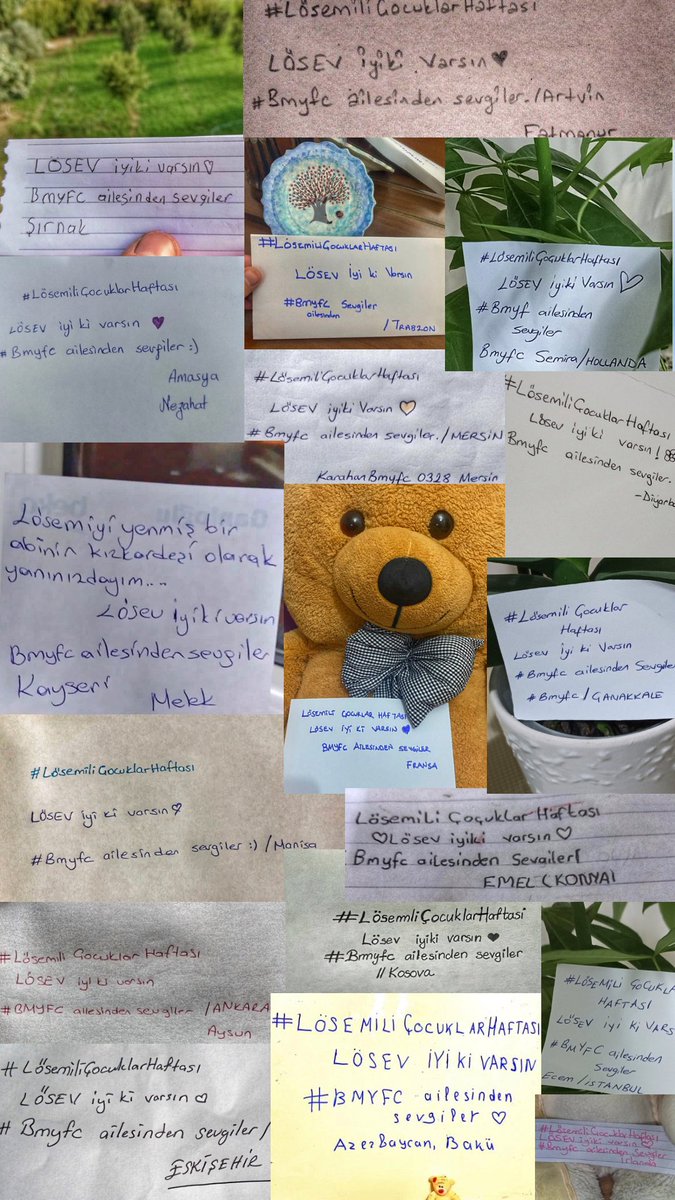 #LösemiliÇocuklarHaftası
LÖSEV iyiki varsın♥
#Bmyfc ailesinden sevgiler./Artvin
Fatmanur
LÖSEV iyiki varsın♡
Bmyfc ailesinden sevgiler
Şırnak
#LÖSEMİLİÇOCUKLARHAFTASI
LÖSEV İyi ki Varsın
#Bmyfc Sevgiler
ailesinden
/TRABZON
#LösemiliÇocuklarHaftası
LÖSEV İyiki Varsın♡
#Bmyf ailesinden
Sevgiler
Bmyfc Semira/HOLLANDA
#LösemiliÇocuklarHaftası
LÖSEV iyi ki varsın ♥
#Bmyfc ailesinden sevgiler :)
Amasya
Nezahat
#LösemilÇocuklarHaftası
LÖSEV iyiki Varsın ♡
#Bmyfc ailesinden sevgiler./MERSİN
KarahanBmyfc 0328 Mersin
#LösemiliÇocuklarHaftası
Lösev iyi ki varsın!
Bmyfc ailesinden sevgiler.
Lösemiyi yenmiş bir
abinin kızkardeşi olarak
yanınızdayım...
Lösev iyiki varsın
Bmyfc ailesinden sevgiler
Kayseri
Melek
LÖSEMİLİ ÇOCUKLAR HAFTASI
LÖSEV İYİ Kİ VARSIN♥
BMYFC AİLESİNDEN SEVGİLER
FRANSA
#Lösemili Çocuklar
Haftası
LÖSEV İyi ki Varsın
#Bmyfc ailesinden Sevgiler
#Bmyfc/ÇANAKKALE
#LösemiliÇocuklarHaftası
LÖSEV iyi ki varsın♡
#Bmyfc ailesinden sevgiler :) /Manisa
Lösemili Çoçuklar Haftası
♡Lösev iyiki varsın♡
Bmyfc ailesinden Sevgiler
EMEL (KONYA)
#Lösemili Çocuklar Haftası
LÖSEV iyi ki varsın
#BMYFC ailesinden sevgiler /ANKARA
Aysun
#LösemliÇocuklarHaftasi
Lösev iyiki varsın ♥
#Bmyfc ailesinden sevgiler
//Kosova
#LÖSEMİLİ ÇOCUKLA
HAFTASI
LÖSEV İYİ Kİ VARS
#BMYFC ailesinden
Sevgiler
Ecem/İSTANBUL
#LösemiliÇocuklarHaftası
LÖSEV iyi ki varsın ♡
#Bmyfc ailesinden sevgiler/
ESKİŞEHİR
#LÖSEMİLİÇOCUKLARHAFTASI
LÖSEV İYİKİ VARSIN
#BMYFC ailesinden
sevgiler ♡
Azerbaycan, Bakü
#LösemiliÇocuklarHaftası
LÖSEV iyiki varsın♡
#Bmyfc ailesinden Sevgiler
İrlanda